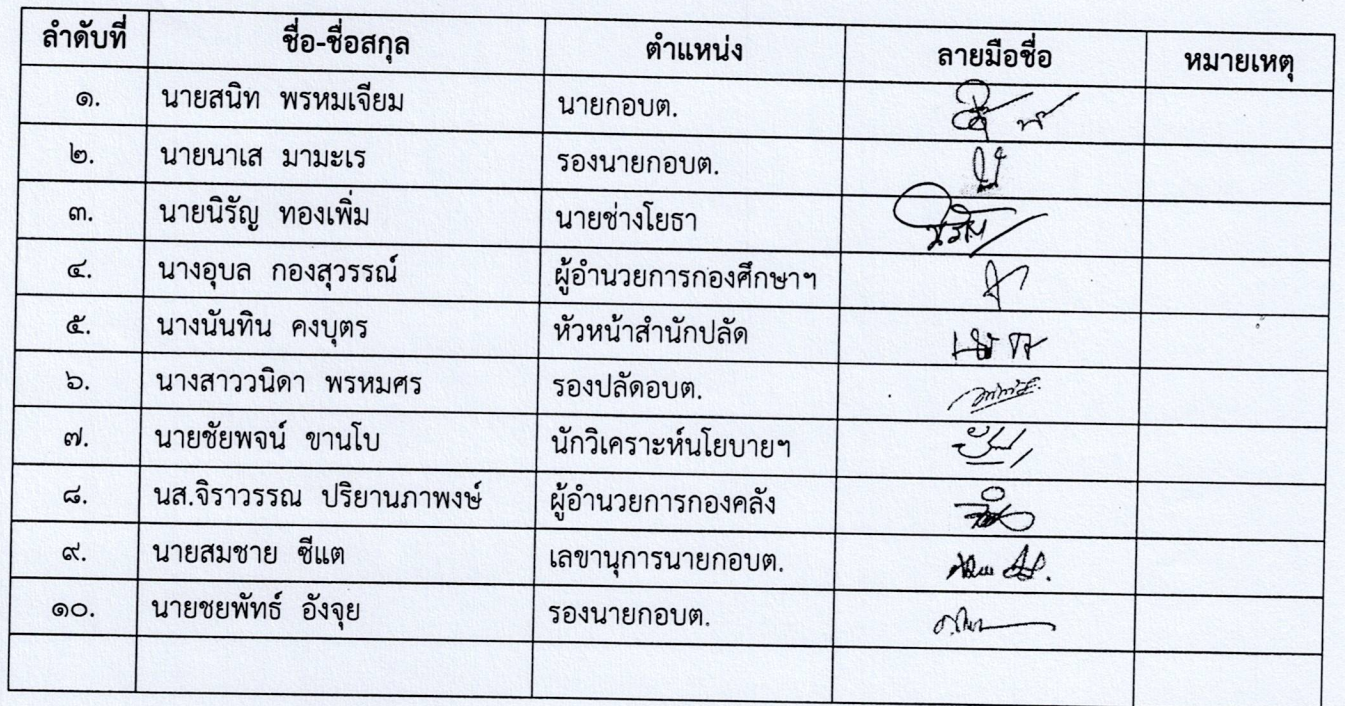 ลำดับที่ ชื่อ-ชื่อสกุล ตำแหน่ง ลายมือชื่อ หมายเหตุ
๑. นายสนิท พรหมเจียม นายกอบต.
๒. นายนาเส มามะเร รองนายกอบต.
๓. นายนิรัญ ทองเพิ่ม นายช่างโยธา
๔. นางอุบล กองสุวรรณ์ ผู้อำนวยการกองศึกษาฯ
๕. นางนันทิน คงบุตร หัวหน้าสำนักปลัด
๖. นางสาววนิดา พรหมศร รองปลัดอบต.
๗. นายชัยพจน์ ขานโบ นักวิเคราะห์นโยบายฯ
๘. นส.จิราวรรณ ปริยานภาพงษ์ ผู้อำนวยการกองคลัง
๙. นายสมชาย ซีแต เลขานุการนายกอบต.
๑๐. นายชยพัทธ์ อังจุย รองนายกอบต.